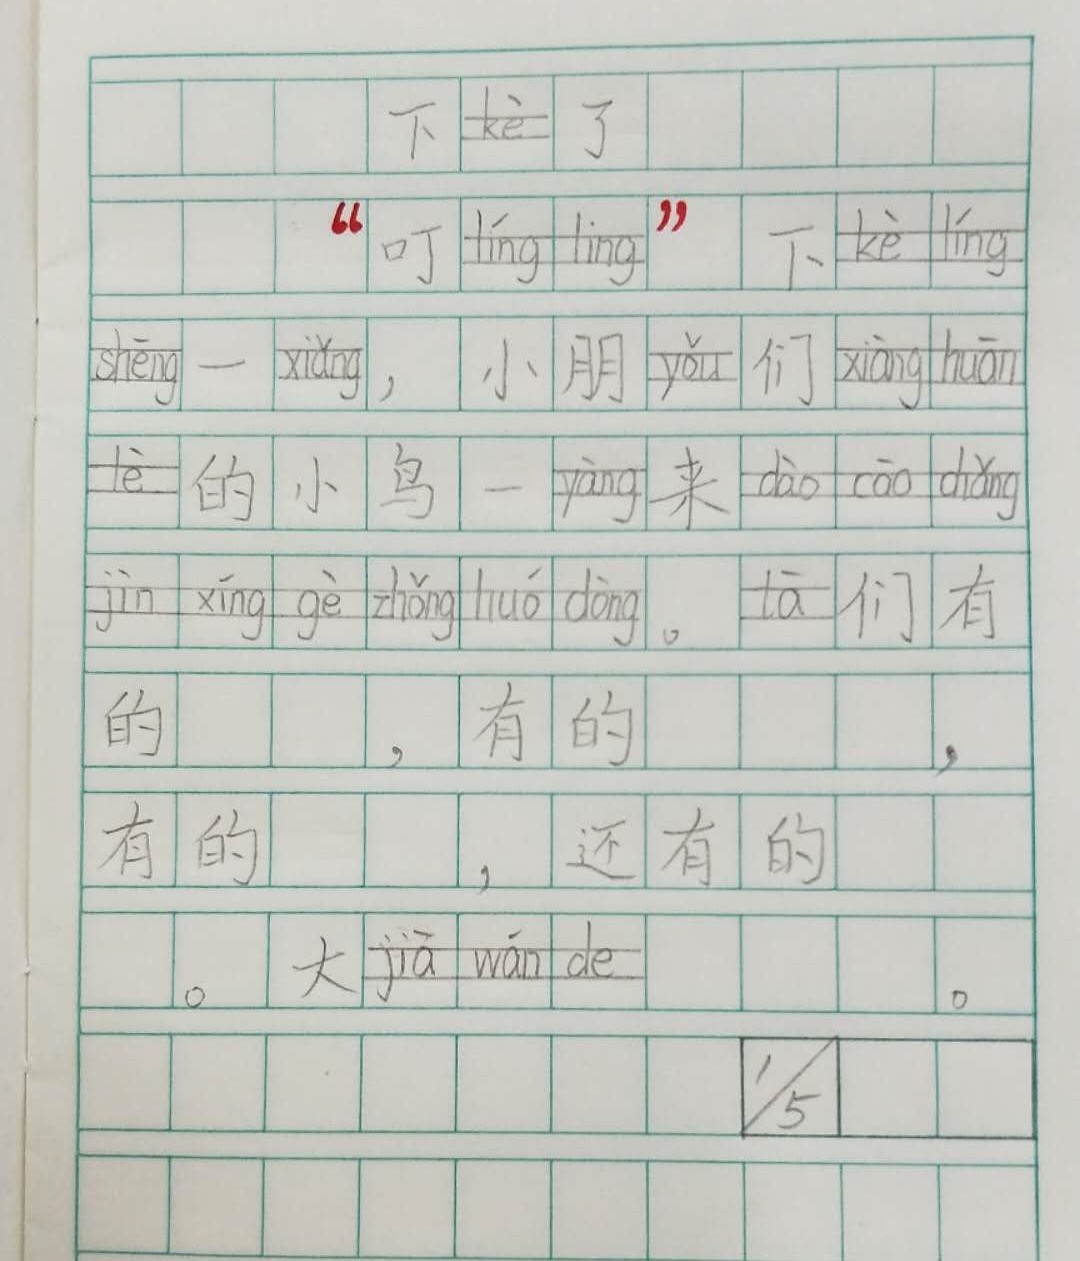 下kè了
“叮líng ling”下kè líng
shēng一xiǎng，小朋yǒu们xiàng huān
lè的小鸟一yàng来dào cāo chǎng
jìn xíng gè zhǒng huó dòng。tā们有
的，有的，
有的，还有的
。大jiā wán de。
1/5